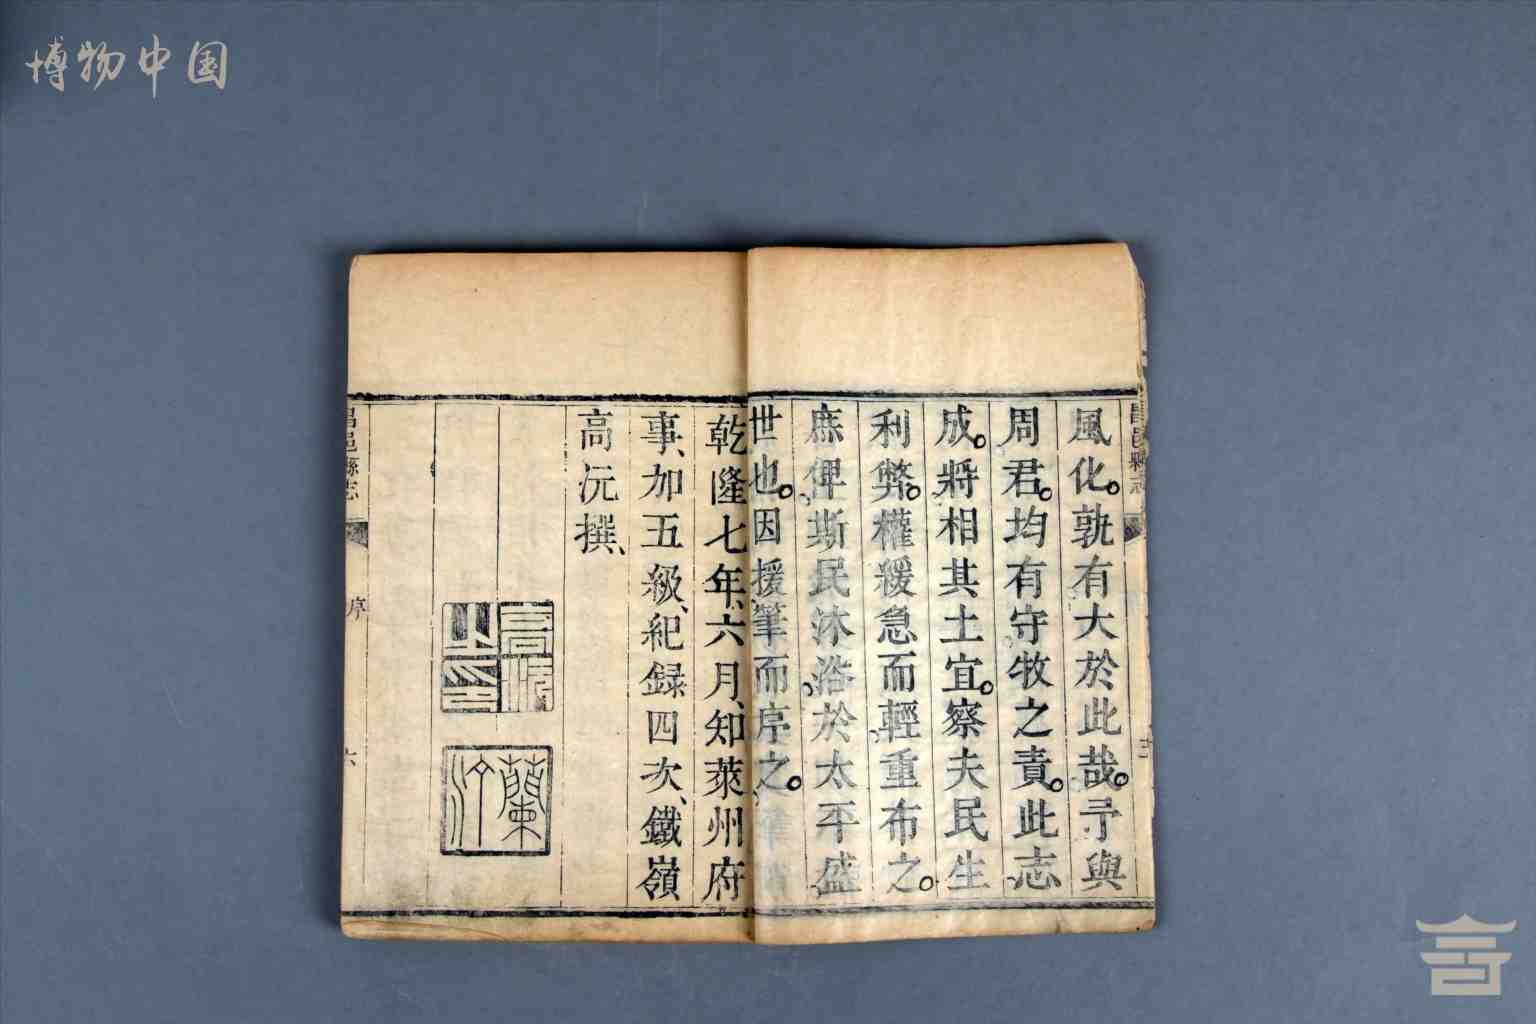 博物中国
昌邑縣志
風化。孰有大於此哉。予與
周君。均有守牧之責。此志
成。將相其土宜。察夫民生
利弊。權緩急而輕重布之。
庶俾斯民沐浴於太平盛
世也。因援筆而序之。
乾隆七年、六月、知萊州府
事、加五級、紀録四次、鐵嶺
高沅撰、
高沅之印
蘭汀
昌邑縣志
序
六